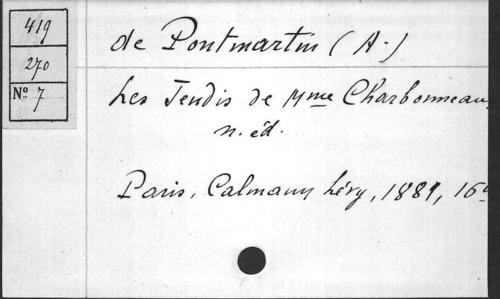 419
270
No 7
de Pontmartin (A.)
Les Jeudis de Mme Charbonneau,
n. éd.
Paris, Calmann Lévy, 1889, 16o